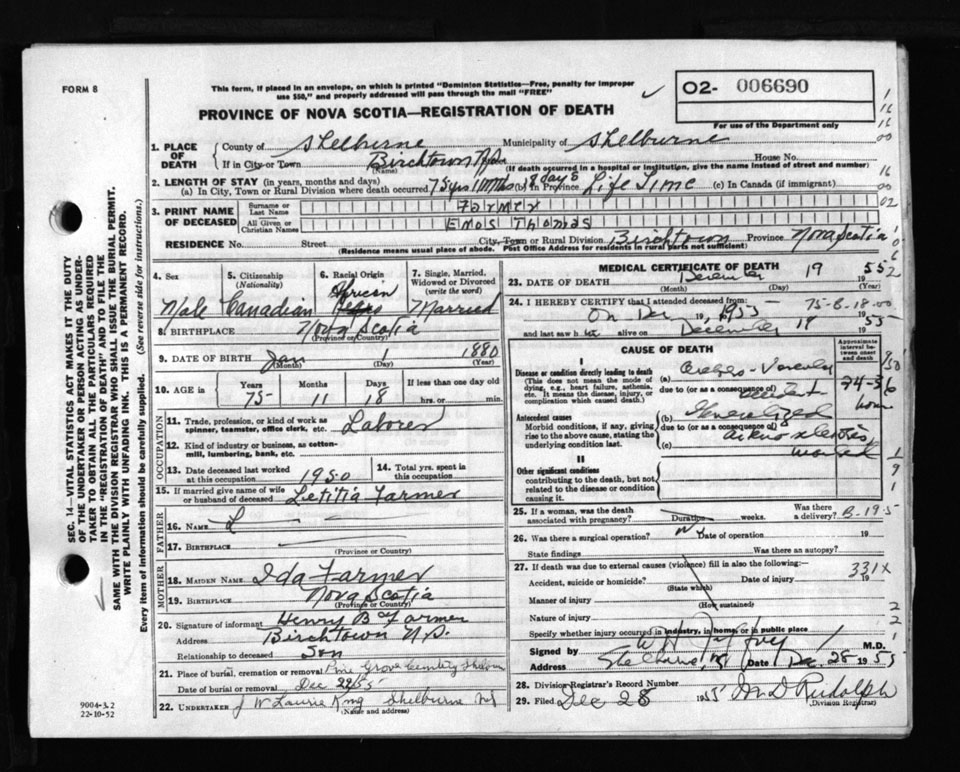 FORM 8
This form, if placed in an envelope, on which is printed "Dominion Statistics—Free, penalty for improper
use $50," and properly addressed will pass through the mail "FREE"
02- 006690
For use of the Department only
PROVINCE OF NOVA SCOTIA—REGISTRATION OF DEATH
1. PLACE OF DEATH
County of Shelburne Municipality of Shelburne
If in City or Town Birchtown (Name) House No.
(If death occurred in a hospital or institution, give the name instead of street and number)
2. LENGTH OF STAY (in years, months and days)
(a) In City, Town or Rural Division where death occurred 75 yrs 11 mths 18 days (b) in Province Life Time (c) In Canada (if immigrant)
3. PRINT NAME OF DECEASED
Surname or Last Name Farmer
All Given or Christian Names Enos Thomas
RESIDENCE No. Street City, Town or Rural Division Birchtown Province Nova Scotia
(Residence means usual place of abode. Post Office Address for residents in rural parts not sufficient)
4. Sex
Male
5. Citizenship (Nationality)
Canadian
6. Racial Origin
African
7. Single, Married, Widowed or Divorced (write the word)
Married
8. BIRTHPLACE Nova Scotia
(Province or Country)
9. DATE OF BIRTH Jan 1 1880
(Month) (Day) (Year)
10. AGE in Years Months Days If less than one day old
75 11 18 hrs. or min.
OCCUPATION
11. Trade, profession, or kind of work as spinner, teamster, office clerk, etc. Laborer
12. Kind of industry or business, as cotton-mill, lumbering, bank, etc.
13. Date deceased last worked at this occupation 1950
14. Total yrs. spent in this occupation
15. If married give name of wife or husband of deceased Letitia Farmer
FATHER
16. NAME
17. BIRTHPLACE
(Province or Country)
MOTHER
18. MAIDEN NAME Ida Farmer
19. BIRTHPLACE Nova Scotia
(Province or Country)
20. Signature of informant Henry B Farmer
Address Birchtown N.S.
Relationship to deceased Son
21. Place of burial, cremation or removal Pine Grove
Date of burial or removal Dec 22/55
22. UNDERTAKER J W Laurie King Shelburne NS
(Name and address)
9004-3.2
22-10-52
MEDICAL CERTIFICATE OF DEATH
23. DATE OF DEATH December 19 1955
(Month) (Day) (Year)
24. I HEREBY CERTIFY that I attended deceased from:— 75-B-18-00
On Dec 19, 1955
and last saw h alive on December 19 1955
CAUSE OF DEATH
Approximate interval between onset and death
I
Disease or condition directly leading to death
(This does not mean the mode of dying, e.g., heart failure, asthenia, etc. It means the disease, injury, or complication which caused death.)
(a) Cerebro-Vascular
due to (or as a consequence of) accident
24-36 hours
Antecedent causes
Morbid conditions, if any, giving rise to the above cause, stating the underlying condition last.
(b) Generalized
due to (or as a consequence of)
(c) marked
II
Other significant conditions contributing to the death, but not related to the disease or condition causing it.
25. If a woman, was the death associated with pregnancy? Duration weeks. Was there a delivery? B-19-5
26. Was there a surgical operation? Date of operation 19
State findings Was there an autopsy?
27. If death was due to external causes (violence) fill in also the following:—
Accident, suicide or homicide? Date of injury 19
331X
(State which)
Manner of injury
(How sustained)
Nature of injury
Specify whether injury occurred in industry, in home, or in public place
Signed by M.D.
Address Date Dec. 28 1955
28. Division Registrar's Record Number
29. Filed Dec 28 1955 M D Rudolph
(Division Registrar)
SEC. 14—VITAL STATISTICS ACT MAKES IT THE DUTY
OF THE UNDERTAKER OR PERSON ACTING AS UNDER-
TAKER TO OBTAIN ALL THE PARTICULARS REQUIRED
IN THE "REGISTRATION OF DEATH" AND TO FILE THE
SAME WITH THE DIVISION REGISTRAR WHO SHALL ISSUE THE BURIAL PERMIT.
WRITE PLAINLY WITH UNFADING INK. THIS IS A PERMANENT RECORD.
Every item of information should be carefully supplied. (See reverse side for instructions.)